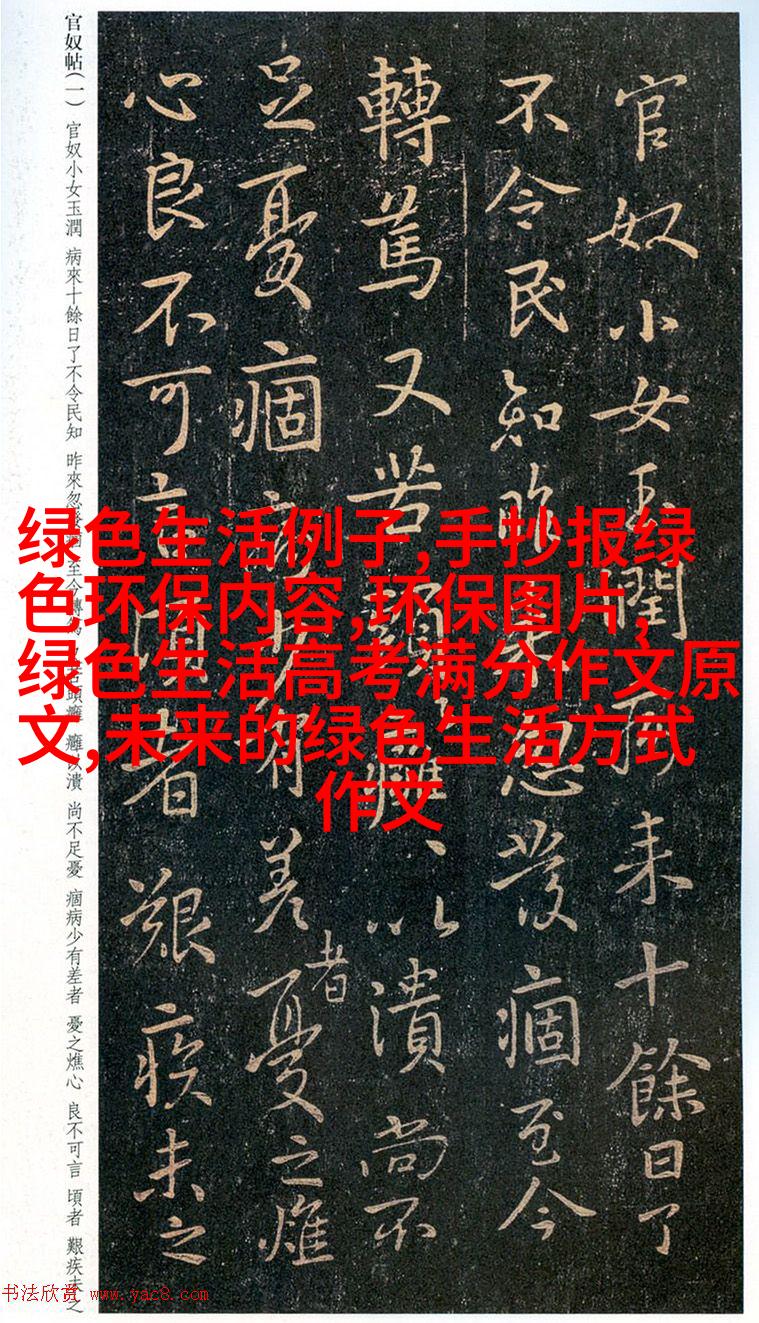 官奴小女玉潤病来十餘日了
不令民知昨来忽發痼至今
轉篤又苦頭癰、以潰尚不
足憂痼病少有差者憂之燋
心良不可言頃者艱疾未之
官奴帖(一) 官奴小女玉潤 病來十餘日了不令民知 昨來忽發痼至今轉篤 又苦頭癰 癰以潰 尚不足憂 痼病少有差者 憂之燋心 良不可言 頃者 艱疾未之
绿色生活例子,手抄报绿
色环保内容,环保图片,
绿色生活高考满分作文原
文,未来的绿色生活方式
作文
书法欣赏 www.yac8.com